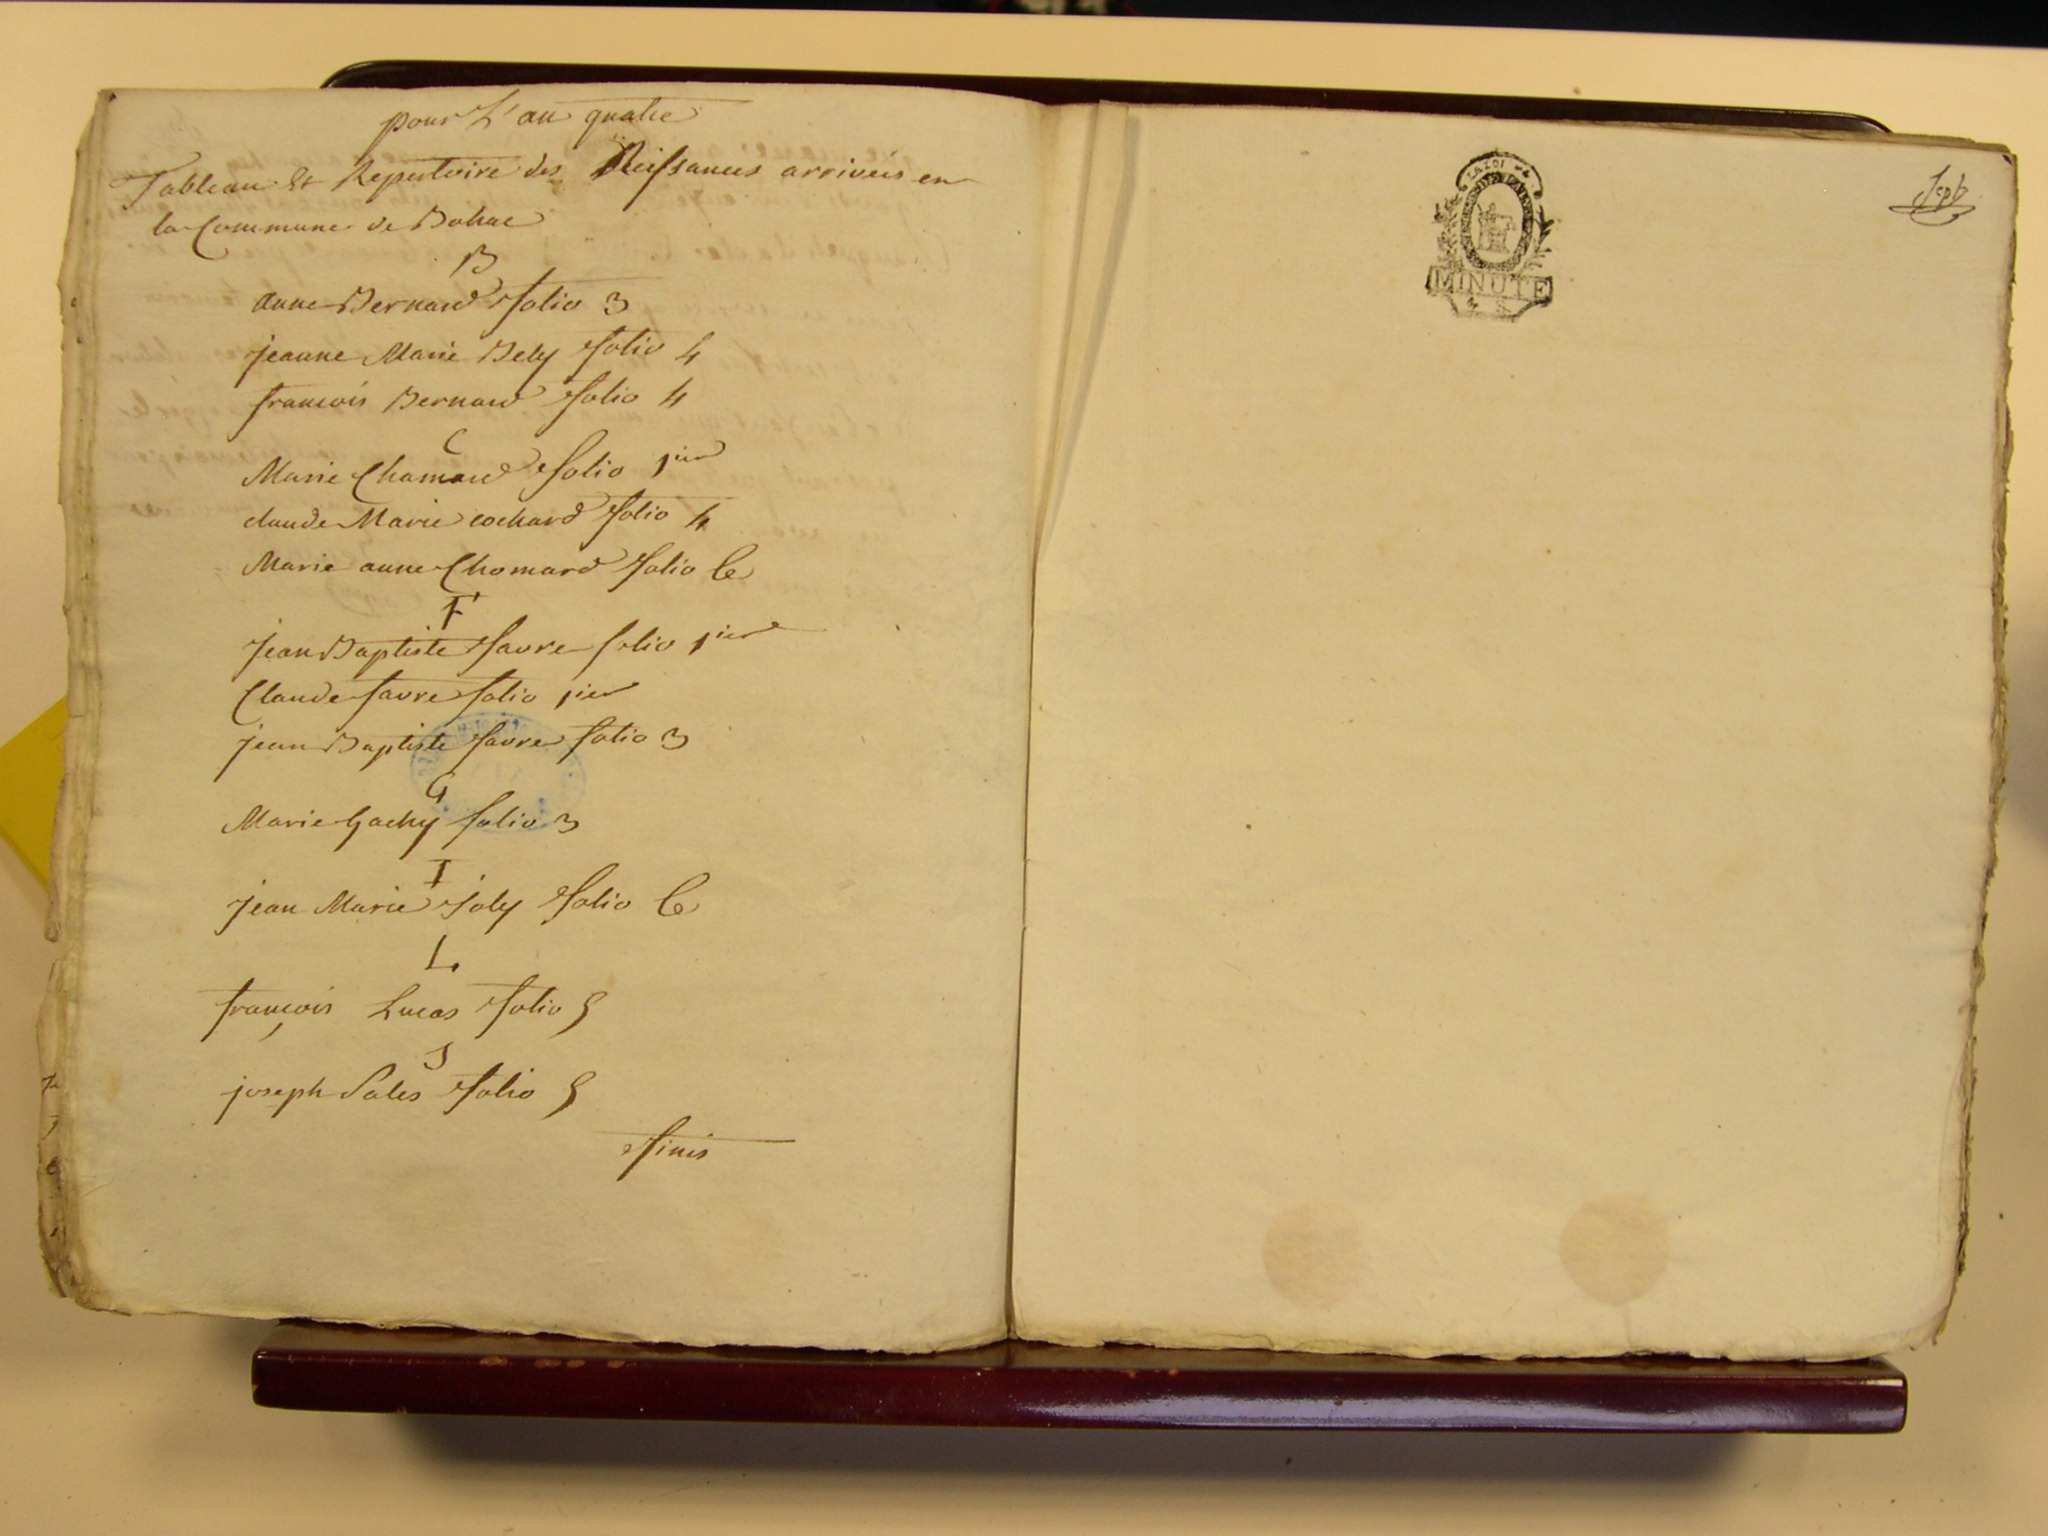 pour L'an quatre
Tableau Et Repertoire des Neissances arrivéis en
la Commune de Bohac
B
anne Bernard folio 3
jeanne Marie Bely folio 4
francois Bernard folio 4
C
Marie Chamard folio 1ier
claude Marie cochard folio 4
Marie anne Chomard folio 6
F
Jean Baptiste favre folio 1ier
Claude favre folio 1ier
jean Baptiste favre folio 3
G
Marie Gachy folio 3
I
jean Marie Joly folio 6
L
françois Lucas folio 5
S
joseph Sales folio 5
finis
LA LOI
MINUTE